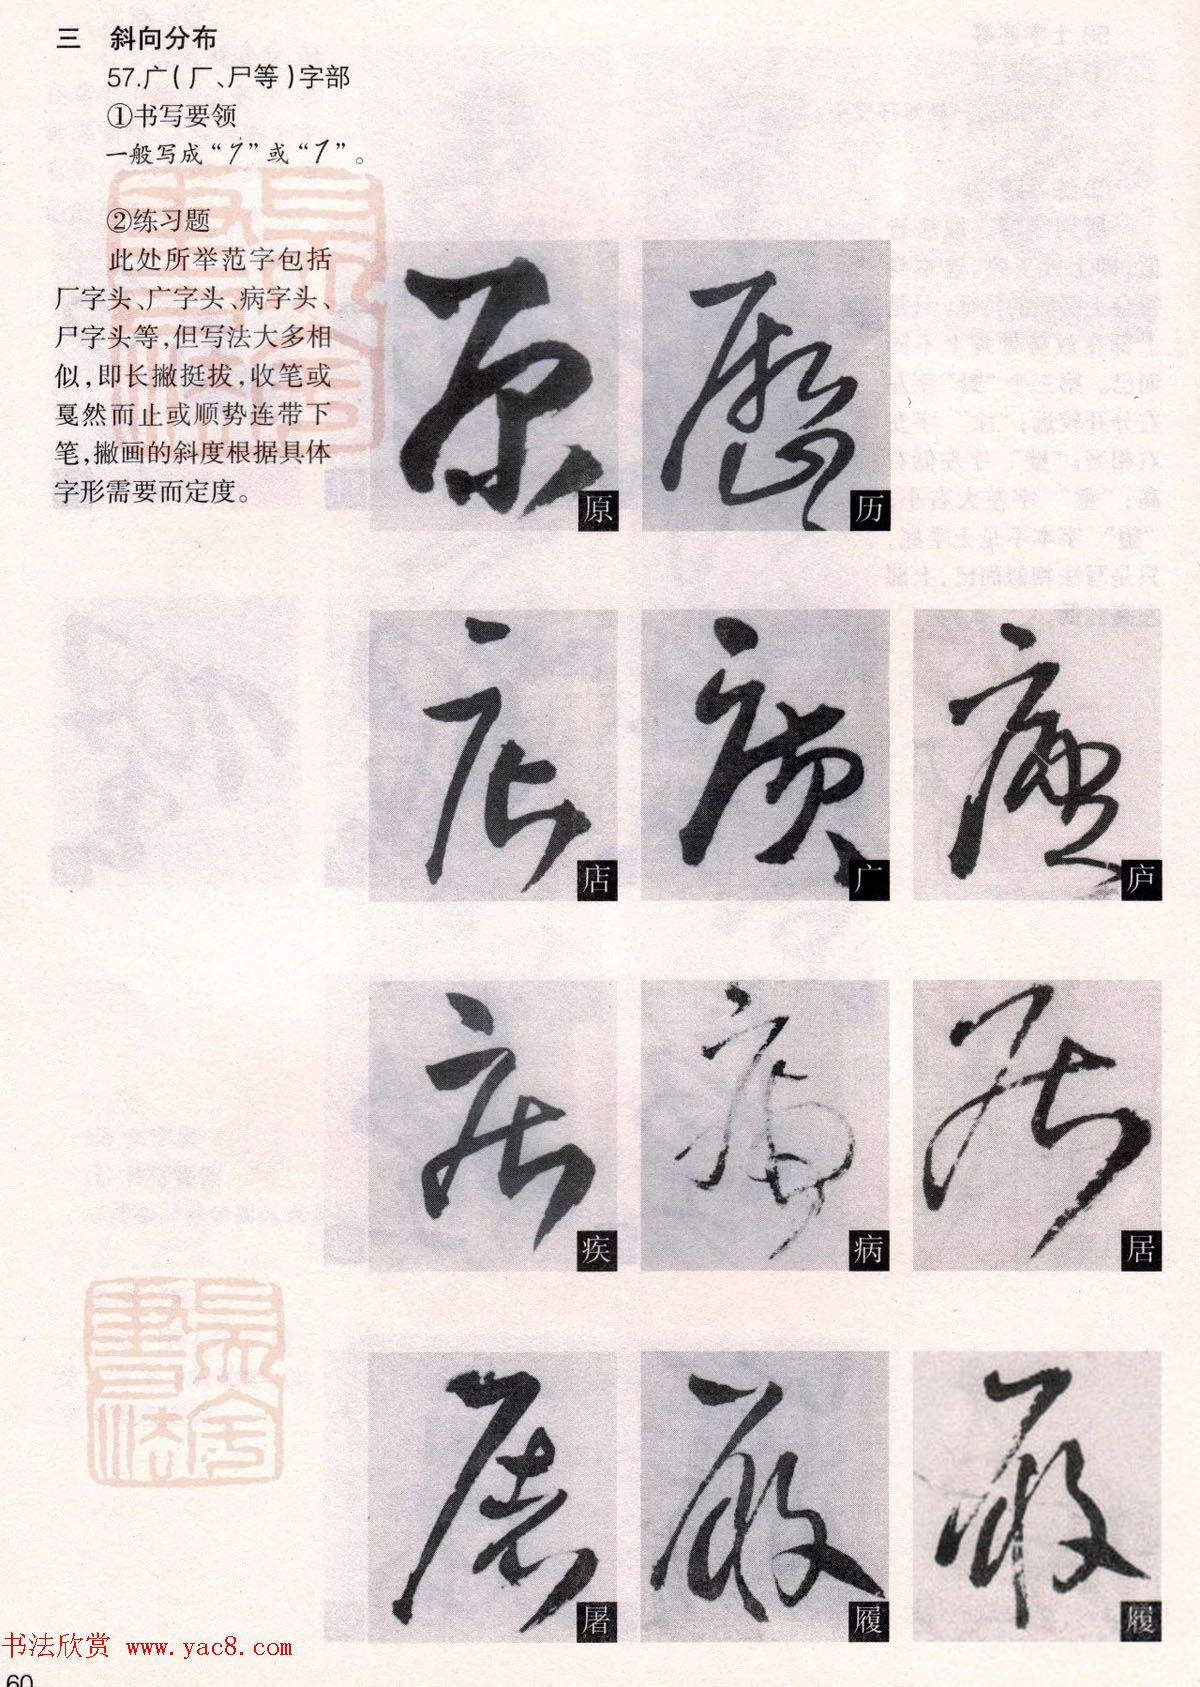 三 斜向分布
57.广(厂、尸等)字部
①书写要领
一般写成“ ”或“ ”。
②练习题
此处所举范字包括
厂字头、广字头、病字头、
尸字头等,但写法大多相
似,即长撇挺拔,收笔或
戛然而止或顺势连带下
笔,撇画的斜度根据具体
字形需要而定度。
原 历
店 广 庐
疾 病 居
屠 履 履
书法欣赏 www.yac8.com
60